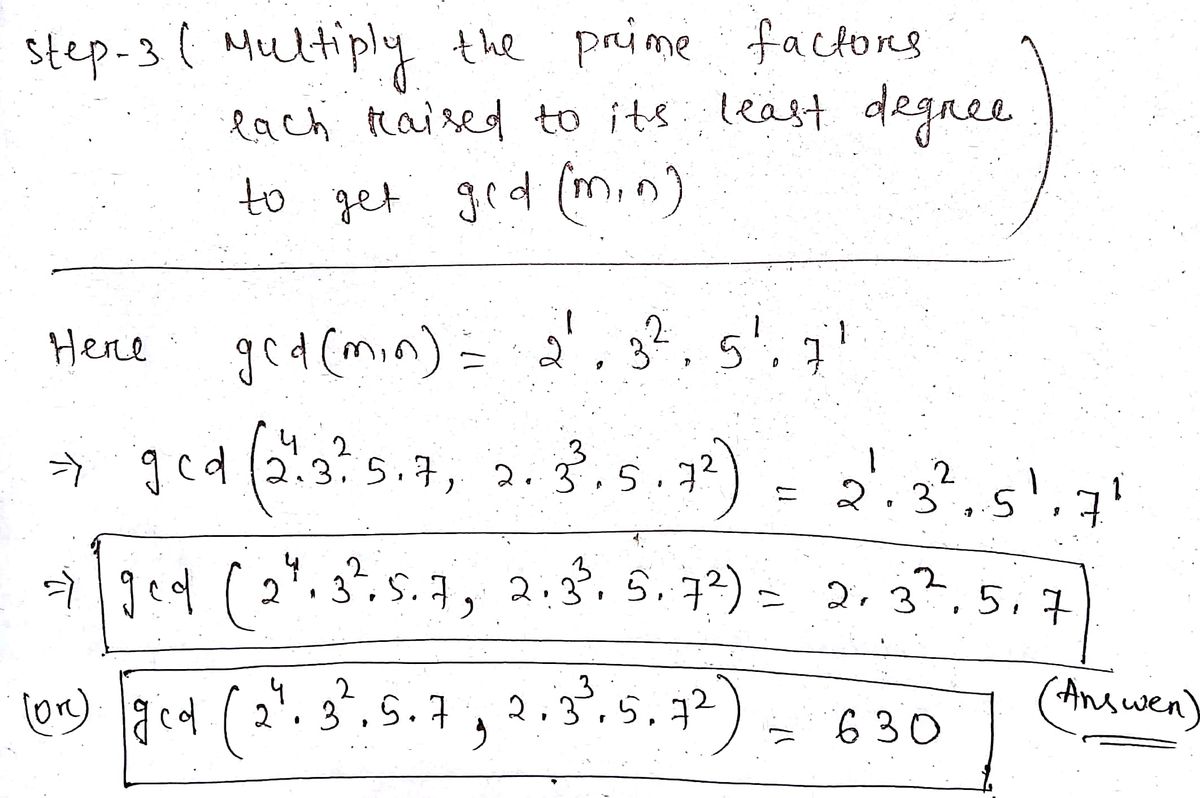 step-3 ( Multiply the prime factors
each raised to its least degree
to get gcd (m,n) )
Here gcd(m,n) = 2¹ . 3² . 5¹ . 7¹
⇒ gcd (2⁴.3².5.7, 2.3³.5.7²) = 2¹.3².5¹.7¹
⇒ gcd (2⁴.3².5.7, 2.3³.5.7²) = 2.3².5.7
(or) gcd (2⁴.3².5.7, 2.3³.5.7²) = 630 (Answer)